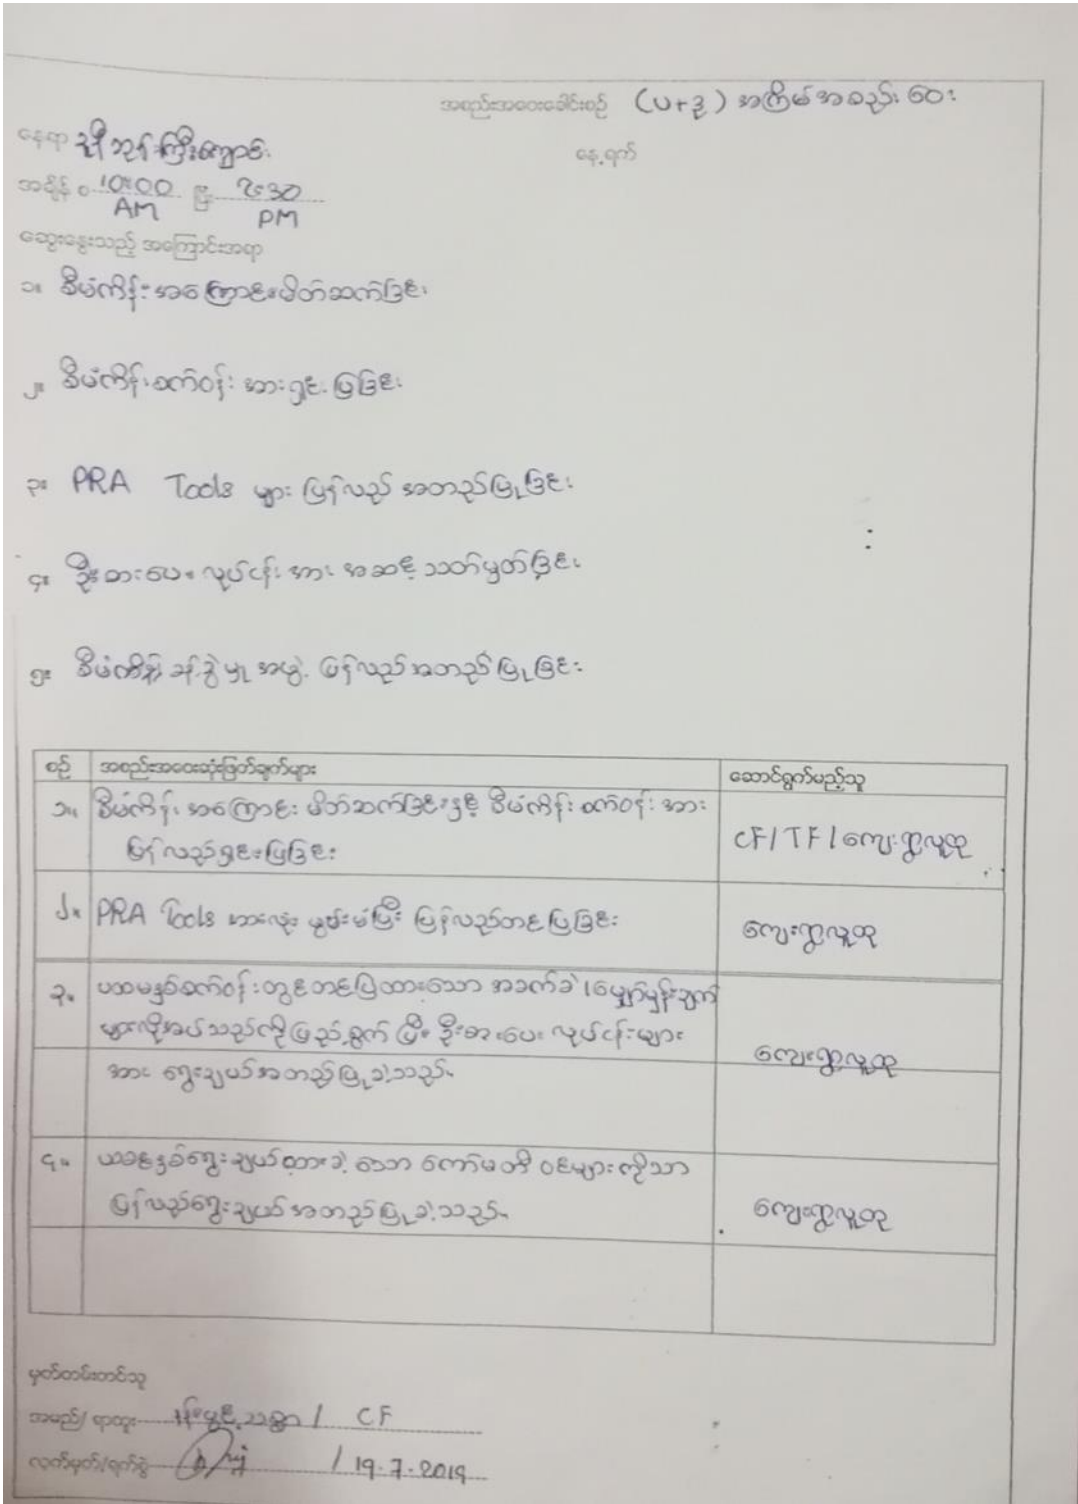 အစည်းအဝေးခေါင်းစဉ် (ပ+ဒု) အကြိမ်အစည်းဝေး
နေရာ ဘုန်းကြီးကျောင်း
နေ့ရက်
အချိန် 10:00 မှ 2:30
AM PM
ဆွေးနွေးသည့် အကြောင်းအရာ
၁။ စီမံကိန်းအကြောင်းမိတ်ဆက်ခြင်း
၂။ စီမံကိန်းစက်ဝန်း အားရှင်းပြခြင်း
၃။ PRA Tools များ ပြန်လည် အတည်ပြုခြင်း
၄။ ဦးစားပေး လုပ်ငန်း အား အဆင့် သတ်မှတ်ခြင်း
၅။ စီမံကိန်း ခန့်ခွဲမှု အဖွဲ့ ပြန်လည်အတည်ပြုခြင်း
စဉ် အစည်းအဝေးဆုံးဖြတ်ချက်များ ဆောင်ရွက်မည့်သူ
၁။ စီမံကိန်း အကြောင်း မိတ်ဆက်ခြင်းနှင့် စီမံကိန်း စက်ဝန်း အား
ပြန်လည်ရှင်းပြခြင်း
CF/TF/ကျေးရွာလူထု
၂။ PRA Tools အားလုံး မွမ်းမံပြီး ပြန်လည်တင်ပြခြင်း
ကျေးရွာလူထု
၃။ ပထမနှစ်စက်ဝန်းတွင်တင်ပြထားသော အခက်ခဲ/မျှော်မှန်းချက်
များလိုအပ်သည်ကိုဖြည့်စွက် ပြီး ဦးစားပေး လုပ်ငန်းများ
အား ရွေးချယ်အတည်ပြုခဲ့သည်။
ကျေးရွာလူထု
၄။ ယခင်နှစ်ရွေးချယ်ထားခဲ့သော ကော်မတီ ဝင်များကိုသာ
ပြန်လည်ရွေးချယ် အတည်ပြုခဲ့သည်။
ကျေးရွာလူထု
မှတ်တမ်းတင်သူ
အမည်/ ရာထူး / CF
လက်မှတ်/ရက်စွဲ / 19.7.2019